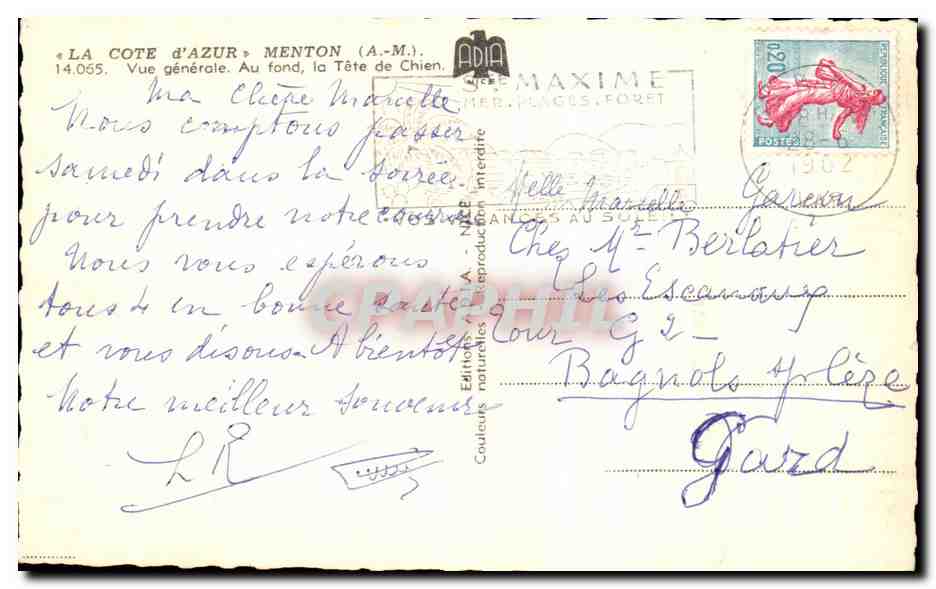 « LA COTE d'AZUR » MENTON (A.-M.).
14.065. Vue générale. Au fond, la Tête de Chien.
ADIA
NICE
Ma Chère Marcelle
Nous comptons passer
samedi dans la soirée
pour prendre notre
Nous vous espérons
tous 4 en bonne santé
et vous disons A bientôt
Notre meilleur souvenir
LR
Editions A.D.I.A. - NICE
Couleurs naturelles - Reproduction interdite
STE MAXIME
MER. PLAGES. FORET
VOS VACANCES AU SOLEIL
28-6
1962
0,20
REPUBLIQUE FRANÇAISE
POSTES
Melle Marcelle Garçon
Chez Mr Berlatier
Les Escanaux
Tour G2
Bagnols s/ Cèze
Gard
CPAPHIL